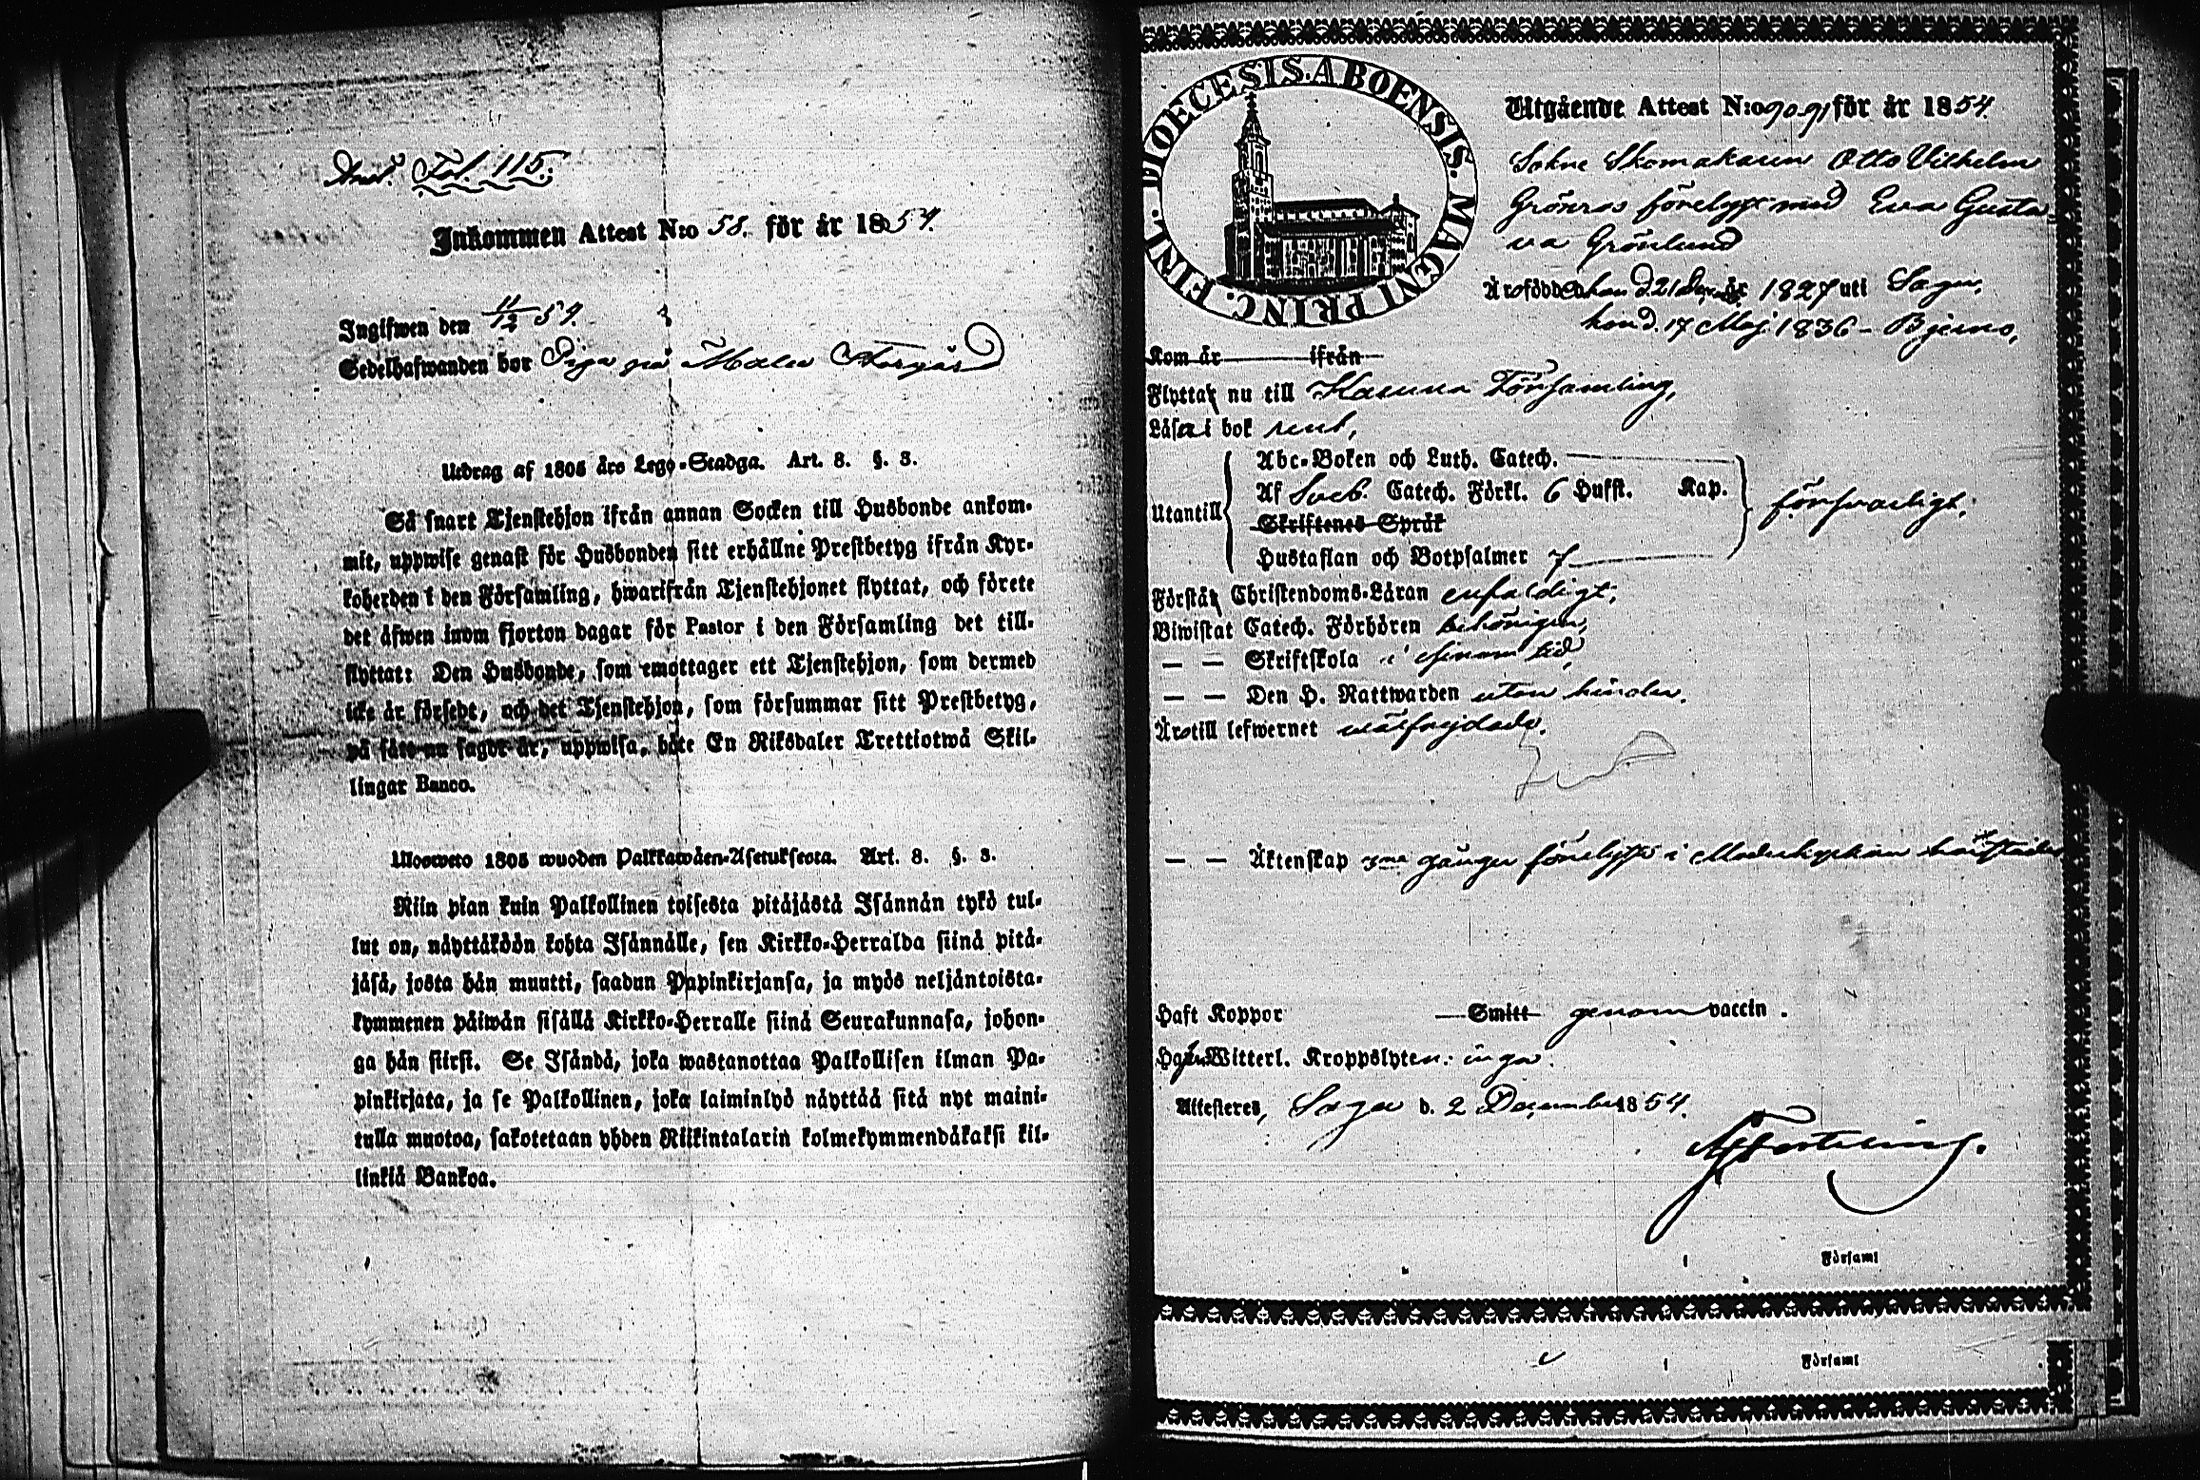 Fol. 115.
Inkommen Attest N:o 58. för år 1854.
Ingifwen den 11/12 54.
Sedelhafwanden bor Piga på
Utdrag af 1805 års Lego-Stadga. Art. 8. §. 3.
Så snart Tjenstehjon ifrån annan Socken till Husbonde ankom-
mit, uppwise genast för Husbonden sitt erhållne Prestbetyg ifrån Kyr-
koherden i den Församling, hwarifrån Tjenstehjonet flyttat, och förete
det äfwen inom fjorton dagar för Pastor i den Församling det till-
flyttat: Den Husbonde, som emottager ett Tjenstehjon, som dermed
icke är försedt, och det Tjenstehjon, som försummar sitt Prestbetyg,
på sätt nu sagdt är, uppwisa, böte En Riksdaler Trettiotwå Skil-
lingar Banco.
Ulosweto 1805 wuoden Palkkawäen-Asetuksesta. Art. 8. §. 3.
Niin pian kuin Palkollinen toisesta pitäjästä Isännän tykö tul-
lut on, näyttäköön kohta Isännälle, sen Kirkko-Herralda siinä pitä-
jäsä, josta hän muutti, saadun Papinkirjansa, ja myös neljäntoista-
kymmenen päiwän sisällä Kirkko-Herralle siinä Seurakunnasa, johon-
ga hän siirsi. Se Isändä, joka wastanottaa Palkollisen ilman Pa-
pinkirjata, ja se Palkollinen, joka laiminlyö näyttää sitä nyt maini-
tulla muotoa, sakotetaan yhden Riikintalarin kolmekymmendäkaksi kil-
linkiä Bankoa.
FINL. DIOECESIS. ABOENSIS. MAGNI PRINC.
Utgående Attest N:o 90-91 för år 1854.
Sokne Skomakaren Otto Vilhelm
Grönroos förelyst med Eva Gusta-
va Grönlund
Äro födde han d. 21 1827 uti Sagu,
hon d. 17 Maj 1836 - Bjerno,
Kom år ifrån
Flytta nu till Karuna Församling,
Läsa i bok rent,
Utantill
Abc-Boken och Luth. Catech.
Af Sveb. Catech. Förkl. 6 Hufst. Kap.
Skriftenes Språk
Hustaflan och Botpsalmer 7
försvarligt.
Förstå Christendoms-Läran enfaldigt,
Biwistat Catech. Förhören behörigen,
— — Skriftskola i sinom tid,
— — Den H. Nattwarden utan hinder.
Äro till lefwernet wälfrejdade.
— — Äktenskap 3ne gånger förelyste i Moderkyrkan
Haft Koppor Smitt genom vaccin.
Hafwa Witterl. Kroppslyten: inga.
Attesteres, Sagu d. 2 December 1854.
i Församl
i Församl